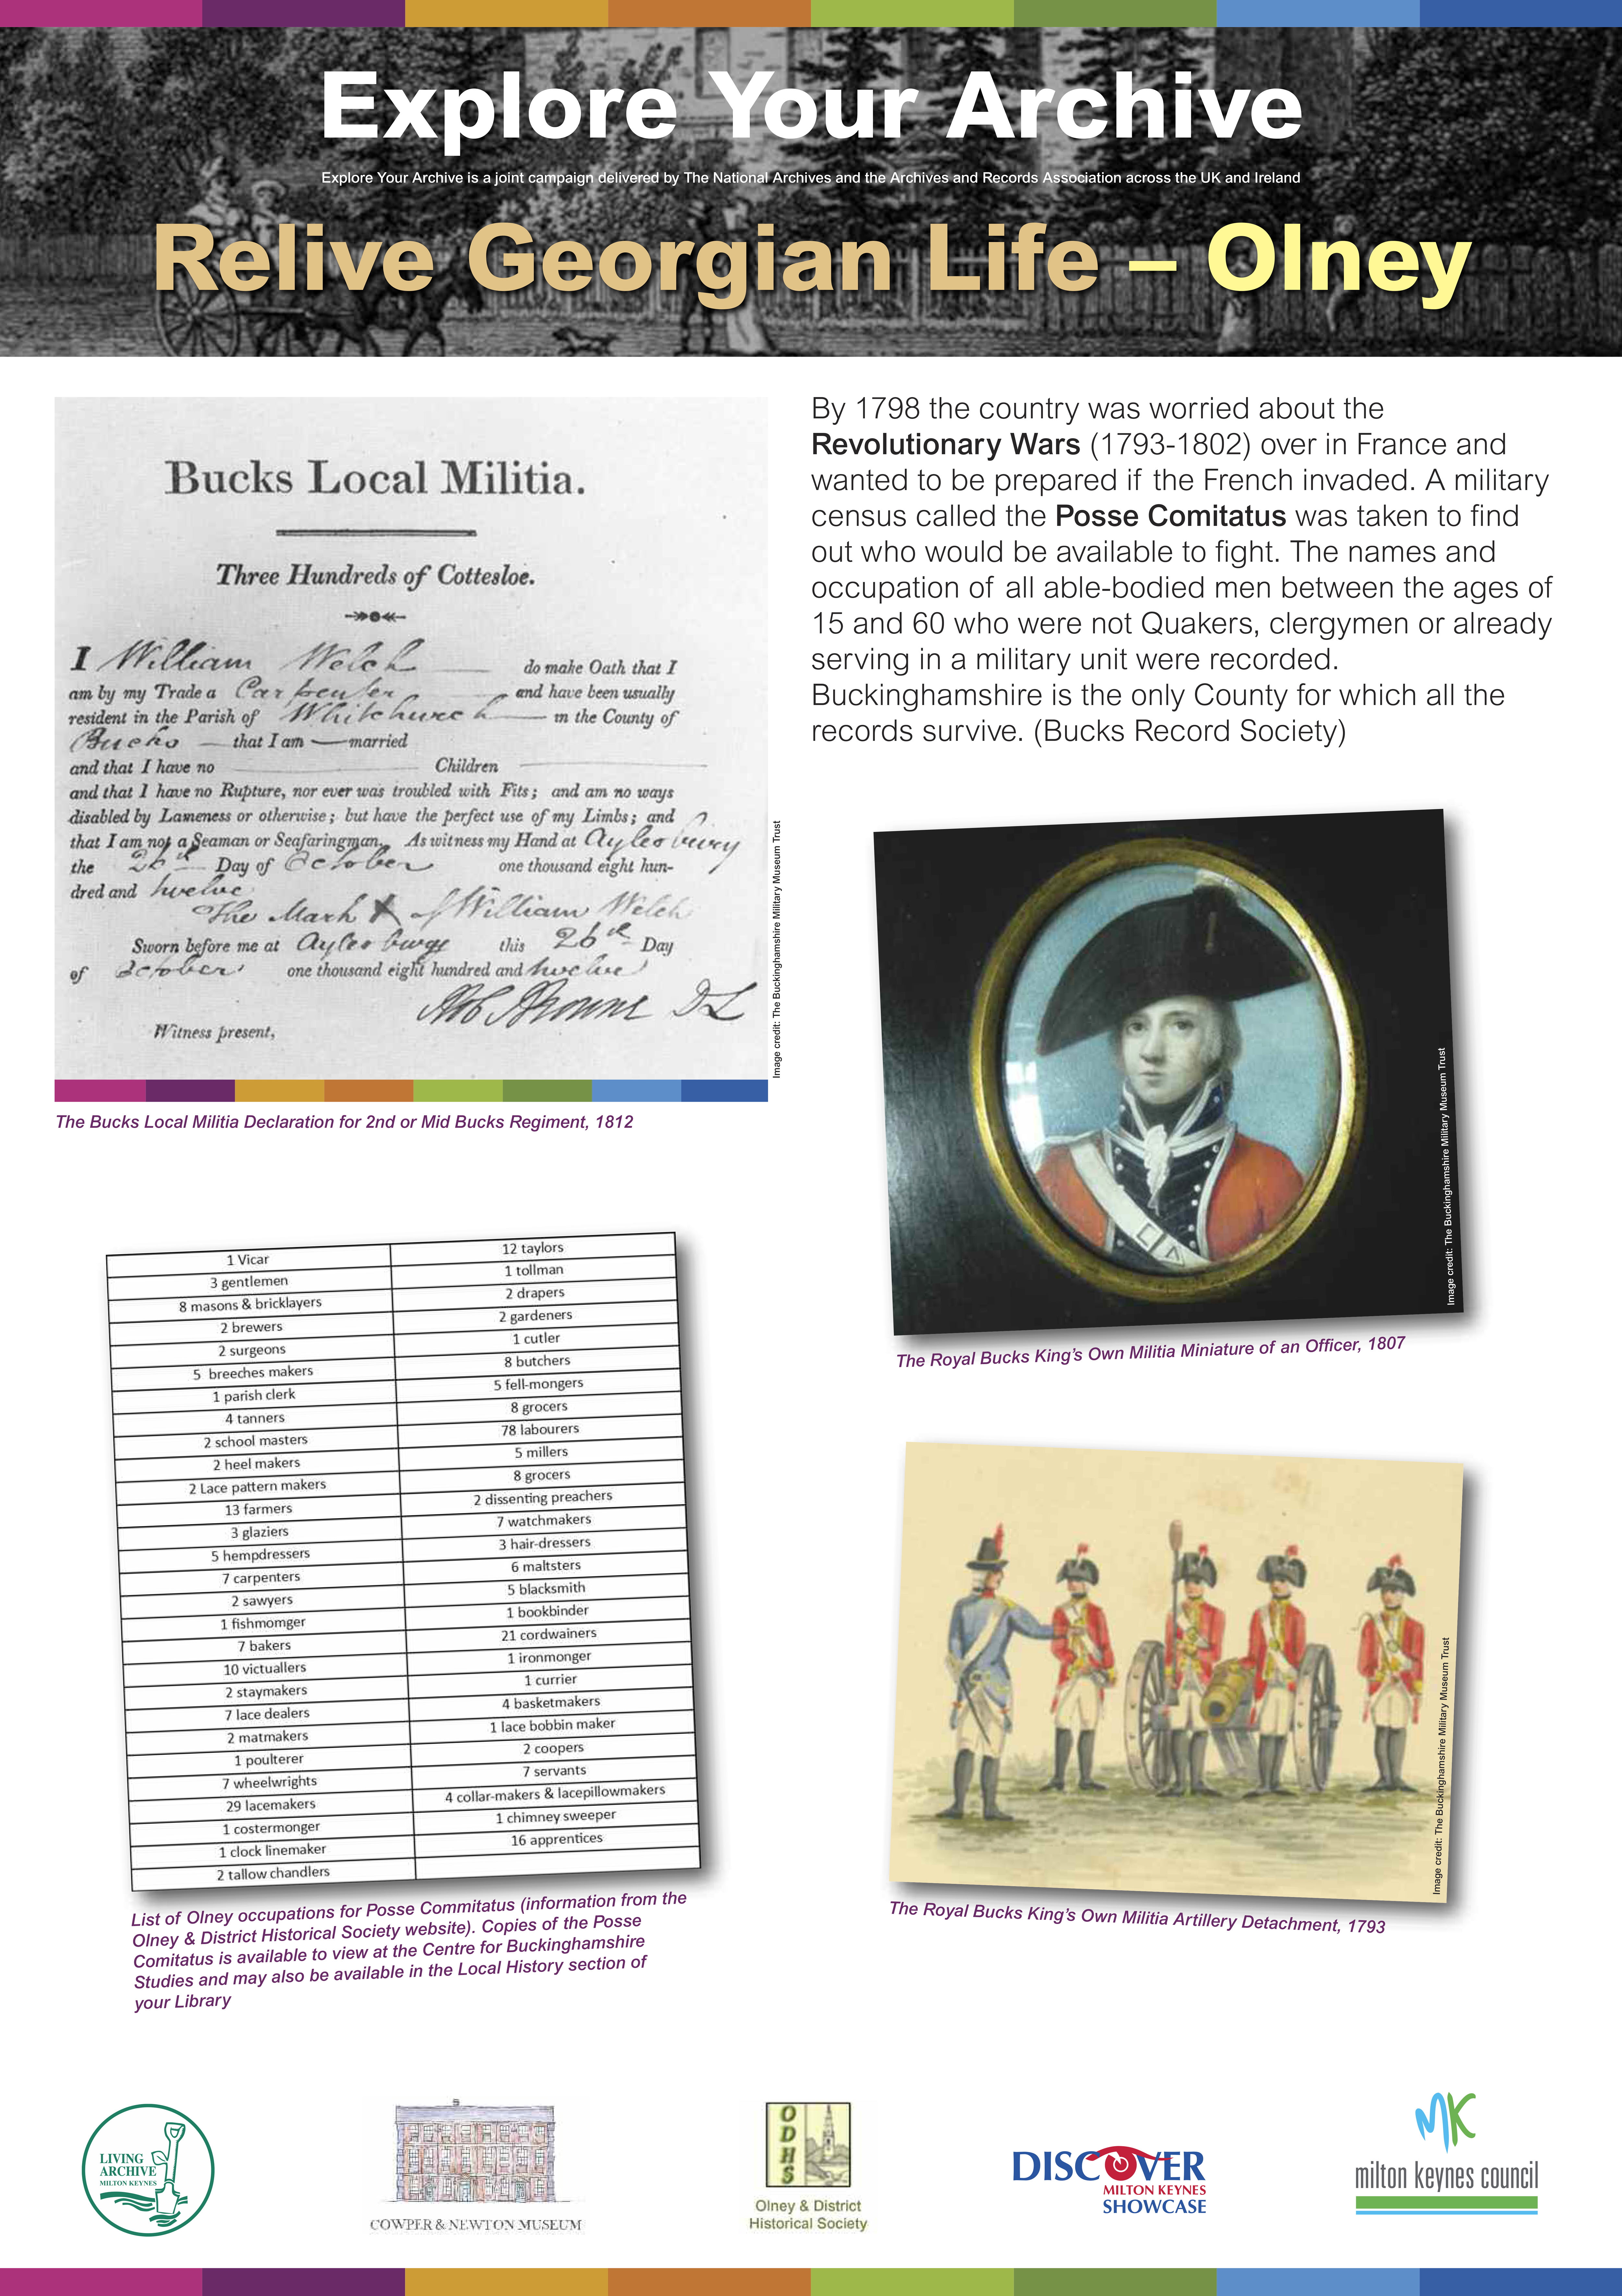 Explore Your Archive
Explore Your Archive is a joint campaign delivered by The National Archives and the Archives and Records Association across the UK and Ireland
Relive Georgian Life – Olney
Bucks Local Militia.
Three Hundreds of Cottesloe.
I William Welch do make Oath that I
am by my Trade a Carpenter and have been usually
resident in the Parish of Whitchurch in the County of
Bucks — that I am — married
and that I have no Children
and that I have no Rupture, nor ever was troubled with Fits; and am no ways
disabled by Lameness or otherwise; but have the perfect use of my Limbs; and
that I am not a Seaman or Seafaringman. As witness my Hand at Aylesbury
the 26th Day of October one thousand eight hun-
dred and twelve
The Mark X of William Welch
Sworn before me at Aylesbury this 26th Day
of October one thousand eight hundred and twelve
Browne DL
Witness present,
Image credit: The Buckinghamshire Military Museum Trust
The Bucks Local Militia Declaration for 2nd or Mid Bucks Regiment, 1812
By 1798 the country was worried about the
Revolutionary Wars (1793-1802) over in France and
wanted to be prepared if the French invaded. A military
census called the Posse Comitatus was taken to find
out who would be available to fight. The names and
occupation of all able-bodied men between the ages of
15 and 60 who were not Quakers, clergymen or already
serving in a military unit were recorded.
Buckinghamshire is the only County for which all the
records survive. (Bucks Record Society)
Image credit: The Buckinghamshire Military Museum Trust
The Royal Bucks King's Own Militia Miniature of an Officer, 1807
1 Vicar
3 gentlemen
8 masons & bricklayers
2 brewers
2 surgeons
5 breeches makers
1 parish clerk
4 tanners
2 school masters
2 heel makers
2 Lace pattern makers
13 farmers
3 glaziers
5 hempdressers
7 carpenters
2 sawyers
1 fishmomger
7 bakers
10 victuallers
2 staymakers
7 lace dealers
2 matmakers
1 poulterer
7 wheelwrights
29 lacemakers
1 costermonger
1 clock linemaker
2 tallow chandlers
12 taylors
1 tollman
2 drapers
2 gardeners
1 cutler
8 butchers
5 fell-mongers
8 grocers
78 labourers
5 millers
8 grocers
2 dissenting preachers
7 watchmakers
3 hair-dressers
6 maltsters
5 blacksmith
1 bookbinder
21 cordwainers
1 ironmonger
1 currier
4 basketmakers
1 lace bobbin maker
2 coopers
7 servants
4 collar-makers & lacepillowmakers
1 chimney sweeper
16 apprentices
List of Olney occupations for Posse Commitatus (information from the
Olney & District Historical Society website). Copies of the Posse
Comitatus is available to view at the Centre for Buckinghamshire
Studies and may also be available in the Local History section of
your Library
Image credit: The Buckinghamshire Military Museum Trust
The Royal Bucks King's Own Militia Artillery Detachment, 1793
LIVING
ARCHIVE
MILTON KEYNES
COWPER & NEWTON MUSEUM
ODHS
Olney & District
Historical Society
DISCOVER
MILTON KEYNES
SHOWCASE
MK
milton keynes council